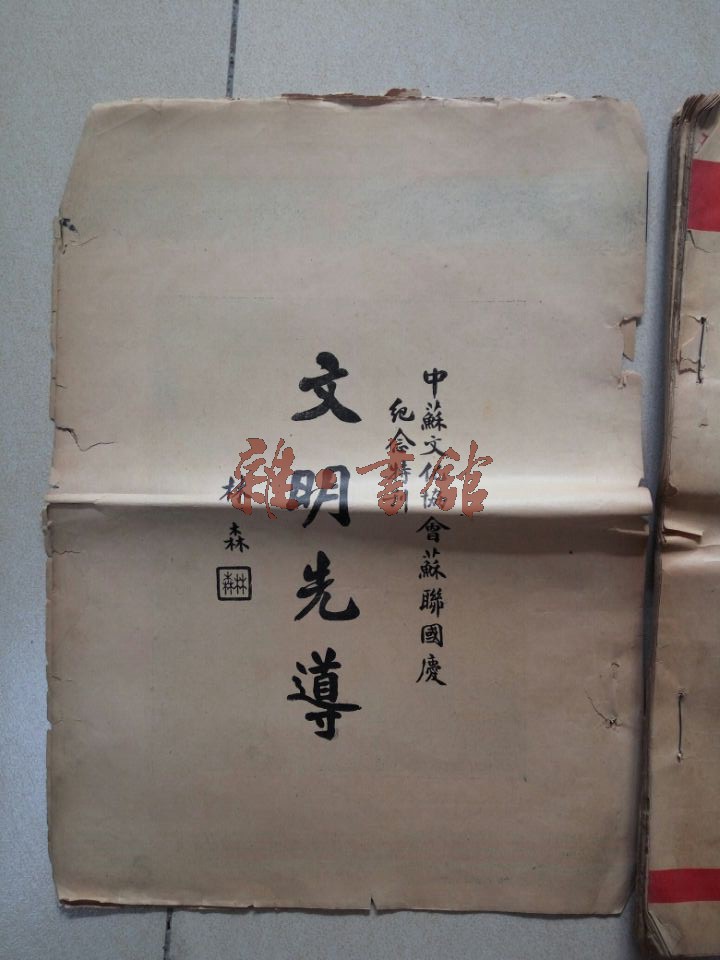 中蘇文化協會蘇聯國慶
紀念特刊
文明先導
林森
林森
雜書館